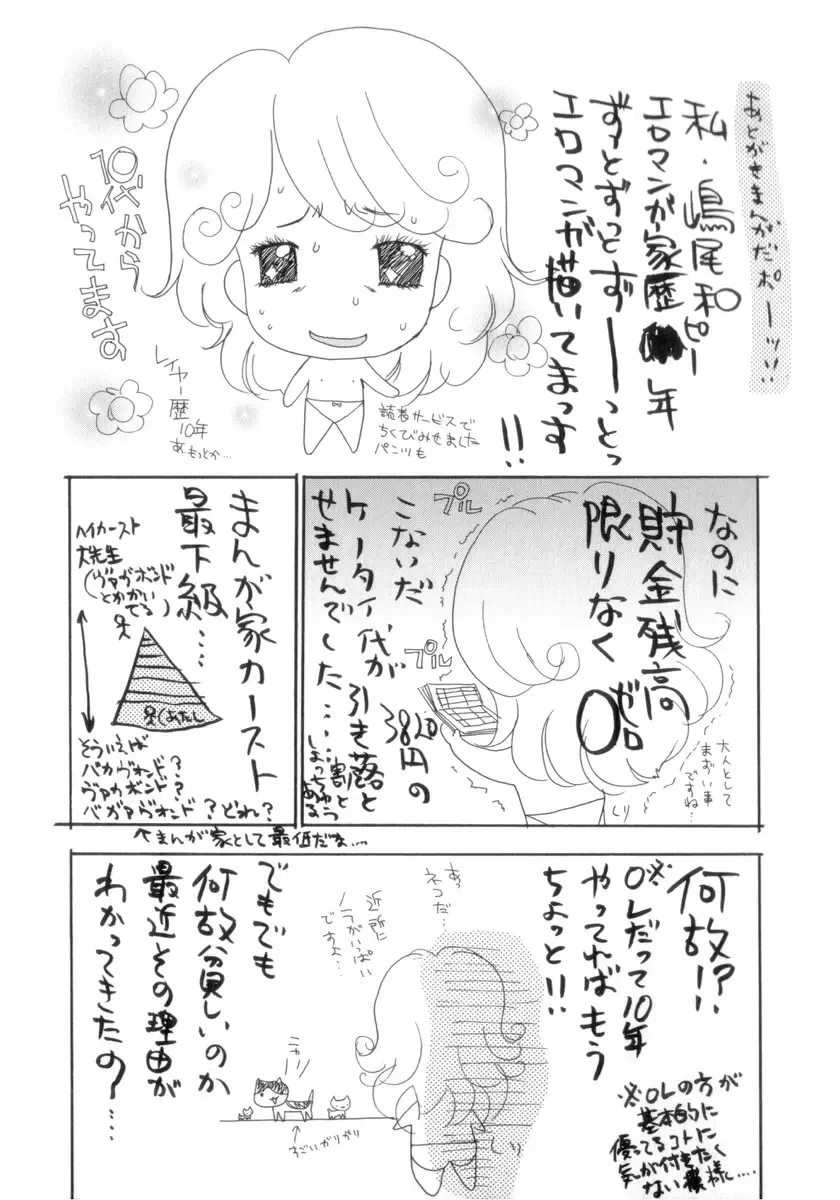 あとがきまんがだポーッ!!
私・嶋尾和ピー
エロマンガ家歴 年
ずっとずっとず――っとっ
エロマンガ描いてまっす
!!
10代から
やってます
レイヤー歴
10年
あもっとか…
読者サービスで
ちくびみせました
パンツも
なのに
貯金残高
限りなく
0
ゼロ
プル
プル
こないだ
ケータイ代が
3820円の
引き落と
せませんでした……
割と
しょっちゅう
ある
大人として
まずい事
ですね…
まんが家カースト
最下級……
ハイカースト
大先生
(ヴァガボンド
とかかい
てる)
(あたし
そういえば
バカヴォンド?
ヴァガボンド?
バガアヴォンド?どれ?
↑まんが家として最低だな…
何故!?
※OLだって10年
やってればもう
ちょっと!!
※OLの方が
基本的に
優ってるコトに
気が付きたく
ない模様……
あっ
ネコだ…
近所に
ノラがいっぱい
ですよ…
ニャー
↑
すごいガリガリ
でもでも
何故貧しいのか
最近その理由が
わかってきたの?……